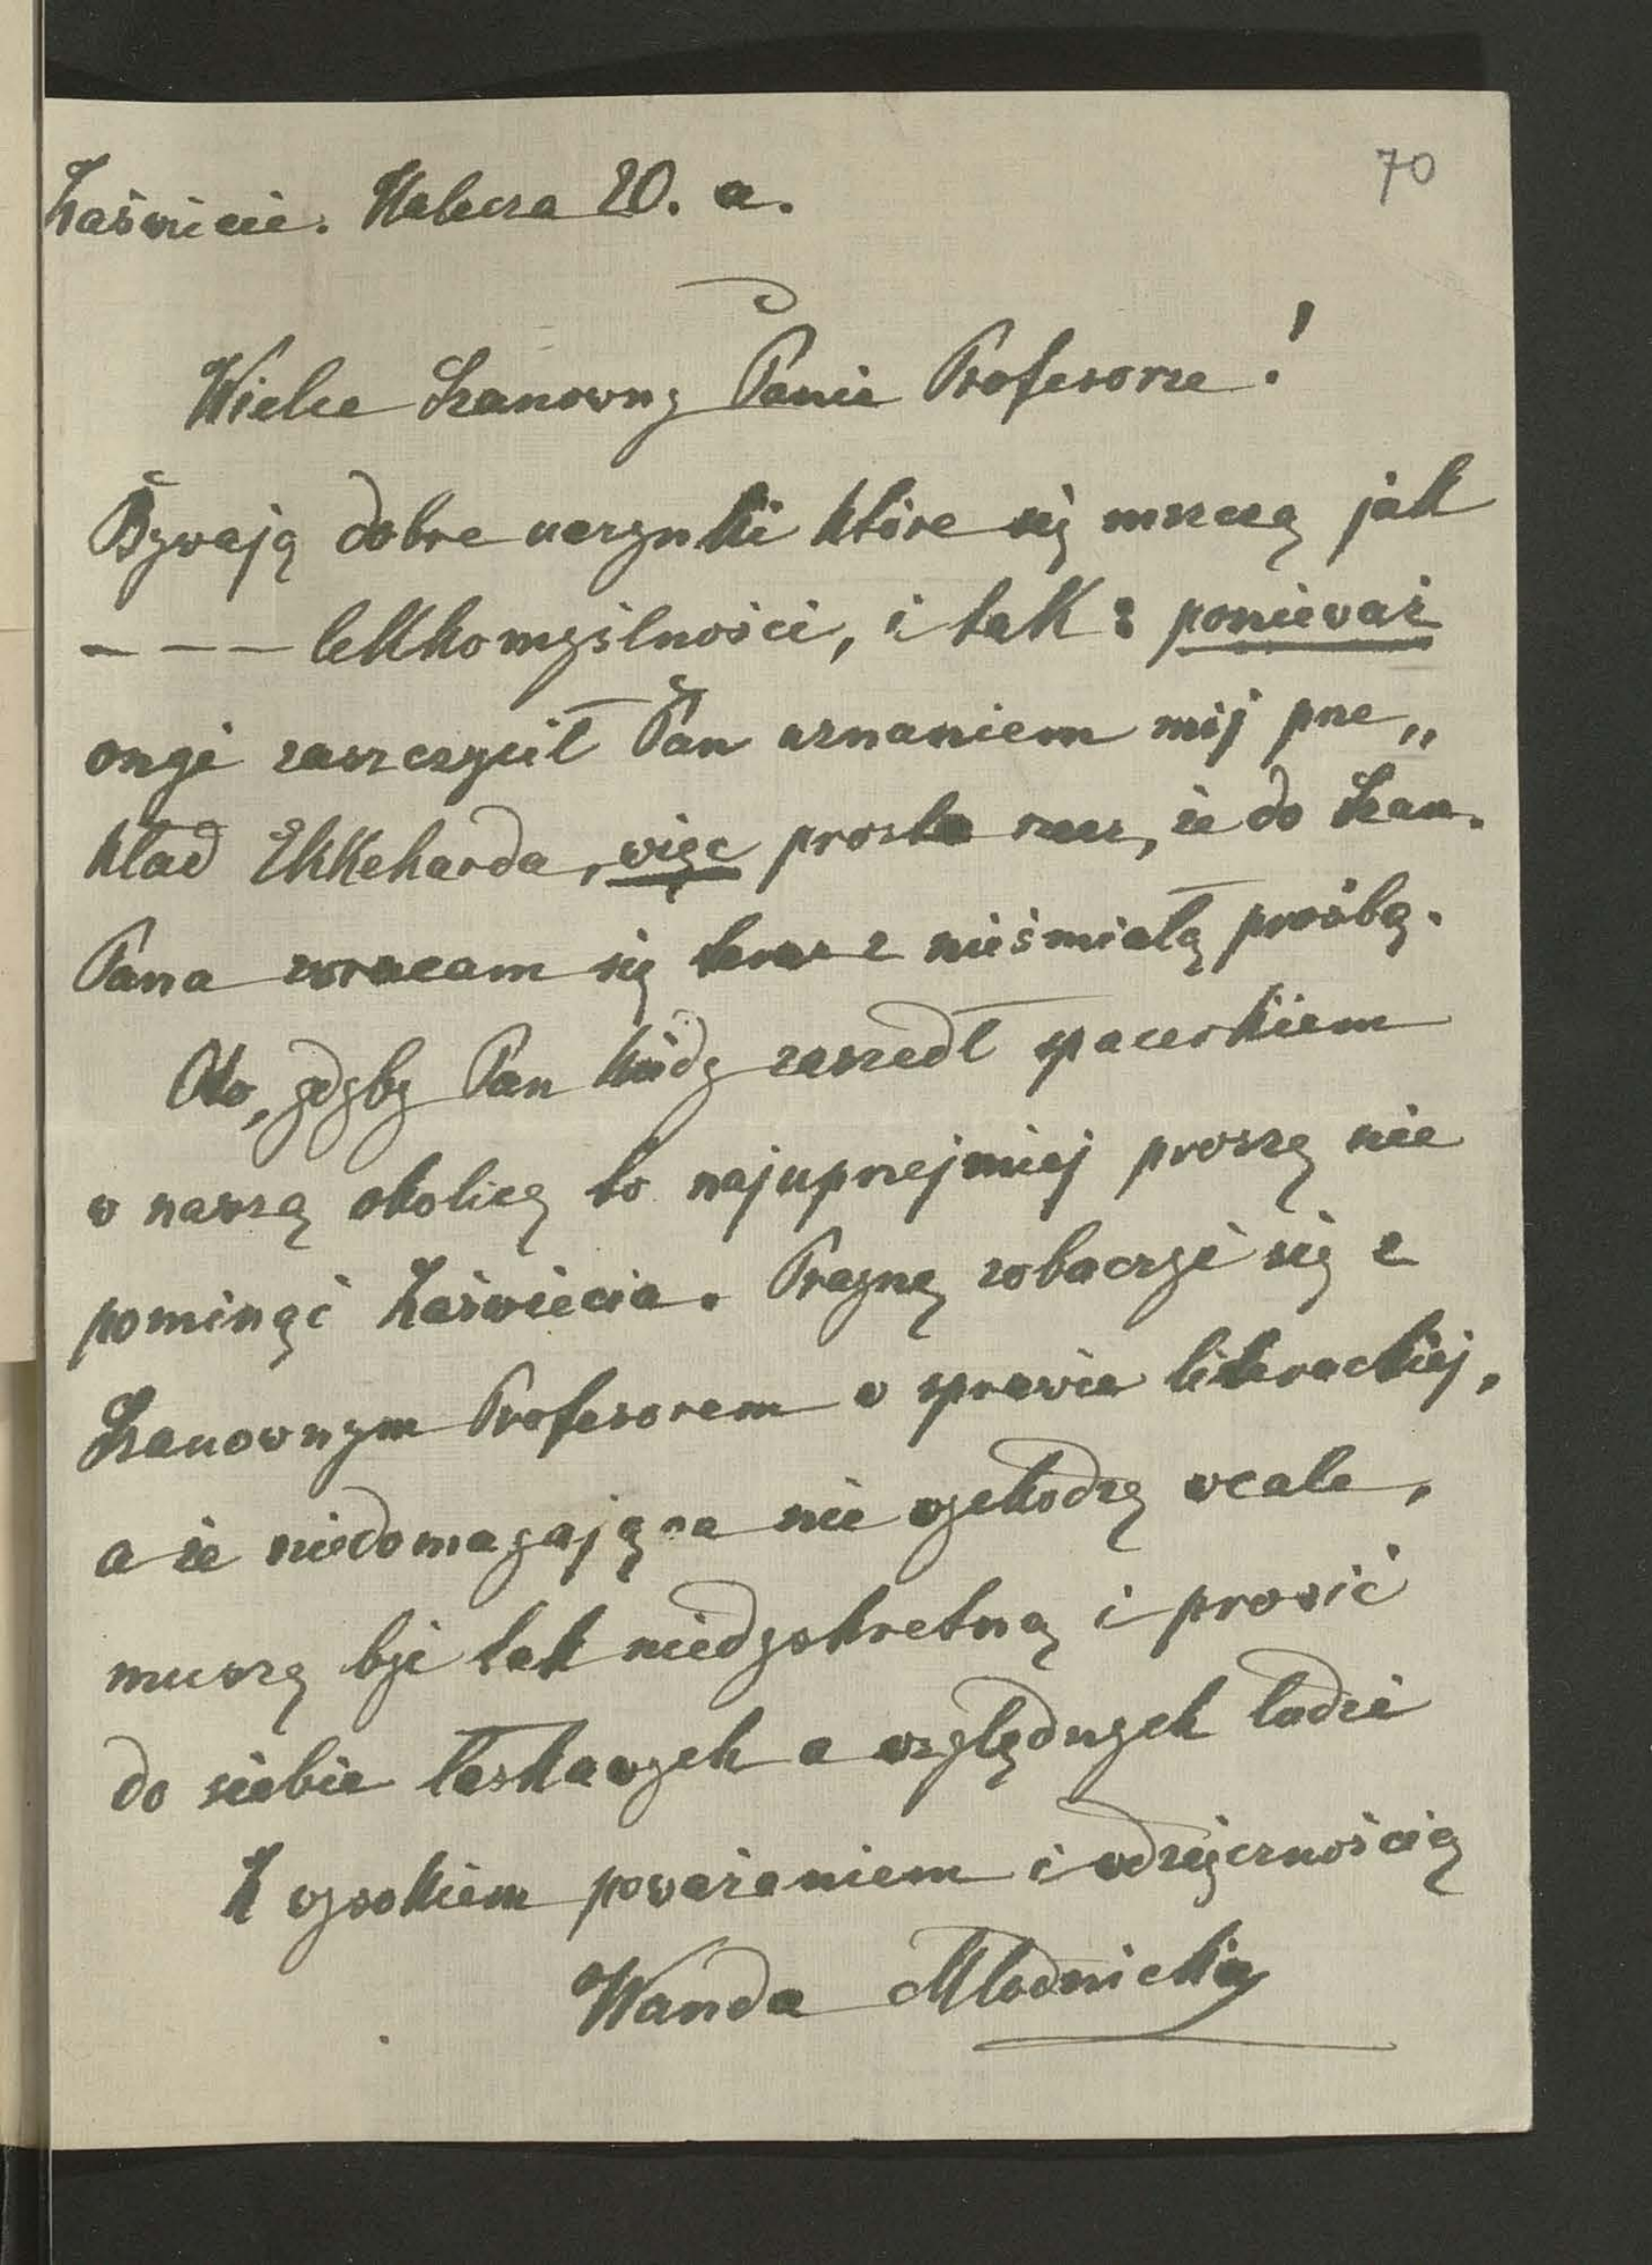 70
Zaświecie. Kalecza 20. a.
Wielce Szanowny Panie Profesorze!
Bywają dobre uczynki które się mszczą jak
– – – lekkomyślności, i tak: ponieważ
ongi zaszczycił Pan uznaniem mój prze„
kład Ekkeharda, więc prosta rzecz, że do Szan.
Pana zwracam się teraz z nieśmiałą prośbą.
Oto, gdyby Pan kiedy zaszedł spacerkiem
w naszą okolicę to najuprzejmiej proszę nie
pominąć Zaświecia. Pragnę zobaczyć się z
Szanownym Profesorem w sprawie literackiej,
a że niedomagająca nie wychodzę wcale,
muszę być tak niedyskretną i prosić
do siebie łaskawych a względnych ludzi
Z wysokiem poważaniem i wdzięcznością
Wanda Młodnicka